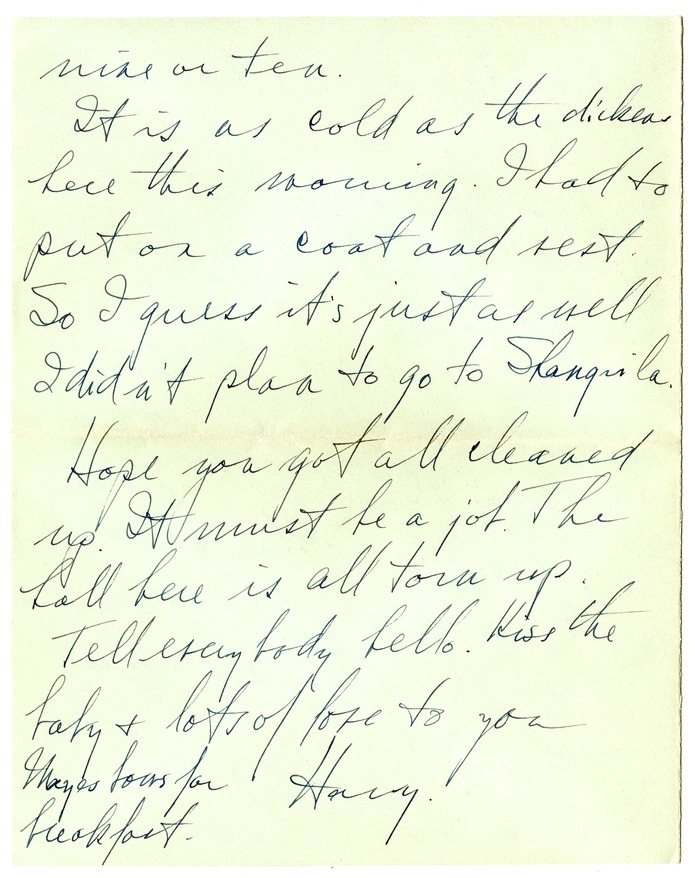 nine or ten.
It is as cold as the dickens
here this morning. I had to
put on a coat and vest.
So I guess it's just as well
I didn't plan to go to Shangrila.
Hope you got all cleaned
up. It must be a job. The
hall here is all torn up.
Tell everybody hello. Kiss the
baby & lots of love to you
Harry.
Mayes bows for
breakfast.